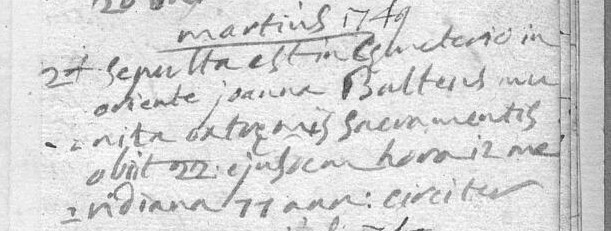 martius 1749
24 sepulta est in Cemeterio in
oriente joanna Balteus mu
nita extremis sacramentis
obiit 22 ejusdem hora 12 me
ridiana 77 ann: circiter